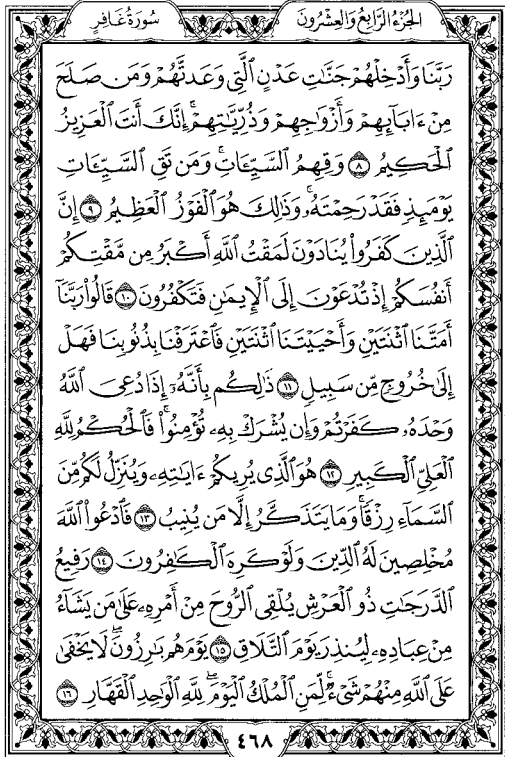 سُورَةُ غَافِرٍ
الجُزْءُ الرَّابِعُ وَالعِشْرُونَ
رَبَّنَا وَأَدْخِلْهُمْ جَنَّٰتِ عَدْنٍ ٱلَّتِى وَعَدتَّهُمْ وَمَن صَلَحَ
مِنْ ءَابَآئِهِمْ وَأَزْوَٰجِهِمْ وَذُرِّيَّٰتِهِمْۚ إِنَّكَ أَنتَ ٱلْعَزِيزُ
ٱلْحَكِيمُ ٨ وَقِهِمُ ٱلسَّيِّـَٔاتِۚ وَمَن تَقِ ٱلسَّيِّـَٔاتِ
يَوْمَئِذٍ فَقَدْ رَحِمْتَهُۥۚ وَذَٰلِكَ هُوَ ٱلْفَوْزُ ٱلْعَظِيمُ ٩ إِنَّ
ٱلَّذِينَ كَفَرُوا۟ يُنَادَوْنَ لَمَقْتُ ٱللَّهِ أَكْبَرُ مِن مَّقْتِكُمْ
أَنفُسَكُمْ إِذْ تُدْعَوْنَ إِلَى ٱلْإِيمَٰنِ فَتَكْفُرُونَ ١٠ قَالُوا۟ رَبَّنَآ
أَمَتَّنَا ٱثْنَتَيْنِ وَأَحْيَيْتَنَا ٱثْنَتَيْنِ فَٱعْتَرَفْنَا بِذُنُوبِنَا فَهَلْ
إِلَىٰ خُرُوجٍ مِّن سَبِيلٍ ١١ ذَٰلِكُم بِأَنَّهُۥٓ إِذَا دُعِىَ ٱللَّهُ
وَحْدَهُۥ كَفَرْتُمْ وَإِن يُشْرَكْ بِهِۦ تُؤْمِنُوا۟ۚ فَٱلْحُكْمُ لِلَّهِ
ٱلْعَلِىِّ ٱلْكَبِيرِ ١٢ هُوَ ٱلَّذِى يُرِيكُمْ ءَايَٰتِهِۦ وَيُنَزِّلُ لَكُم مِّنَ
ٱلسَّمَآءِ رِزْقًاۚ وَمَا يَتَذَكَّرُ إِلَّا مَن يُنِيبُ ١٣ فَٱدْعُوا۟ ٱللَّهَ
مُخْلِصِينَ لَهُ ٱلدِّينَ وَلَوْ كَرِهَ ٱلْكَٰفِرُونَ ١٤ رَفِيعُ
ٱلدَّرَجَٰتِ ذُو ٱلْعَرْشِ يُلْقِى ٱلرُّوحَ مِنْ أَمْرِهِۦ عَلَىٰ مَن يَشَآءُ
مِنْ عِبَادِهِۦ لِيُنذِرَ يَوْمَ ٱلتَّلَاقِ ١٥ يَوْمَ هُم بَٰرِزُونَۖ لَا يَخْفَىٰ
عَلَى ٱللَّهِ مِنْهُمْ شَىْءٌۚ لِّمَنِ ٱلْمُلْكُ ٱلْيَوْمَۖ لِلَّهِ ٱلْوَٰحِدِ ٱلْقَهَّارِ ١٦
٤٦٨